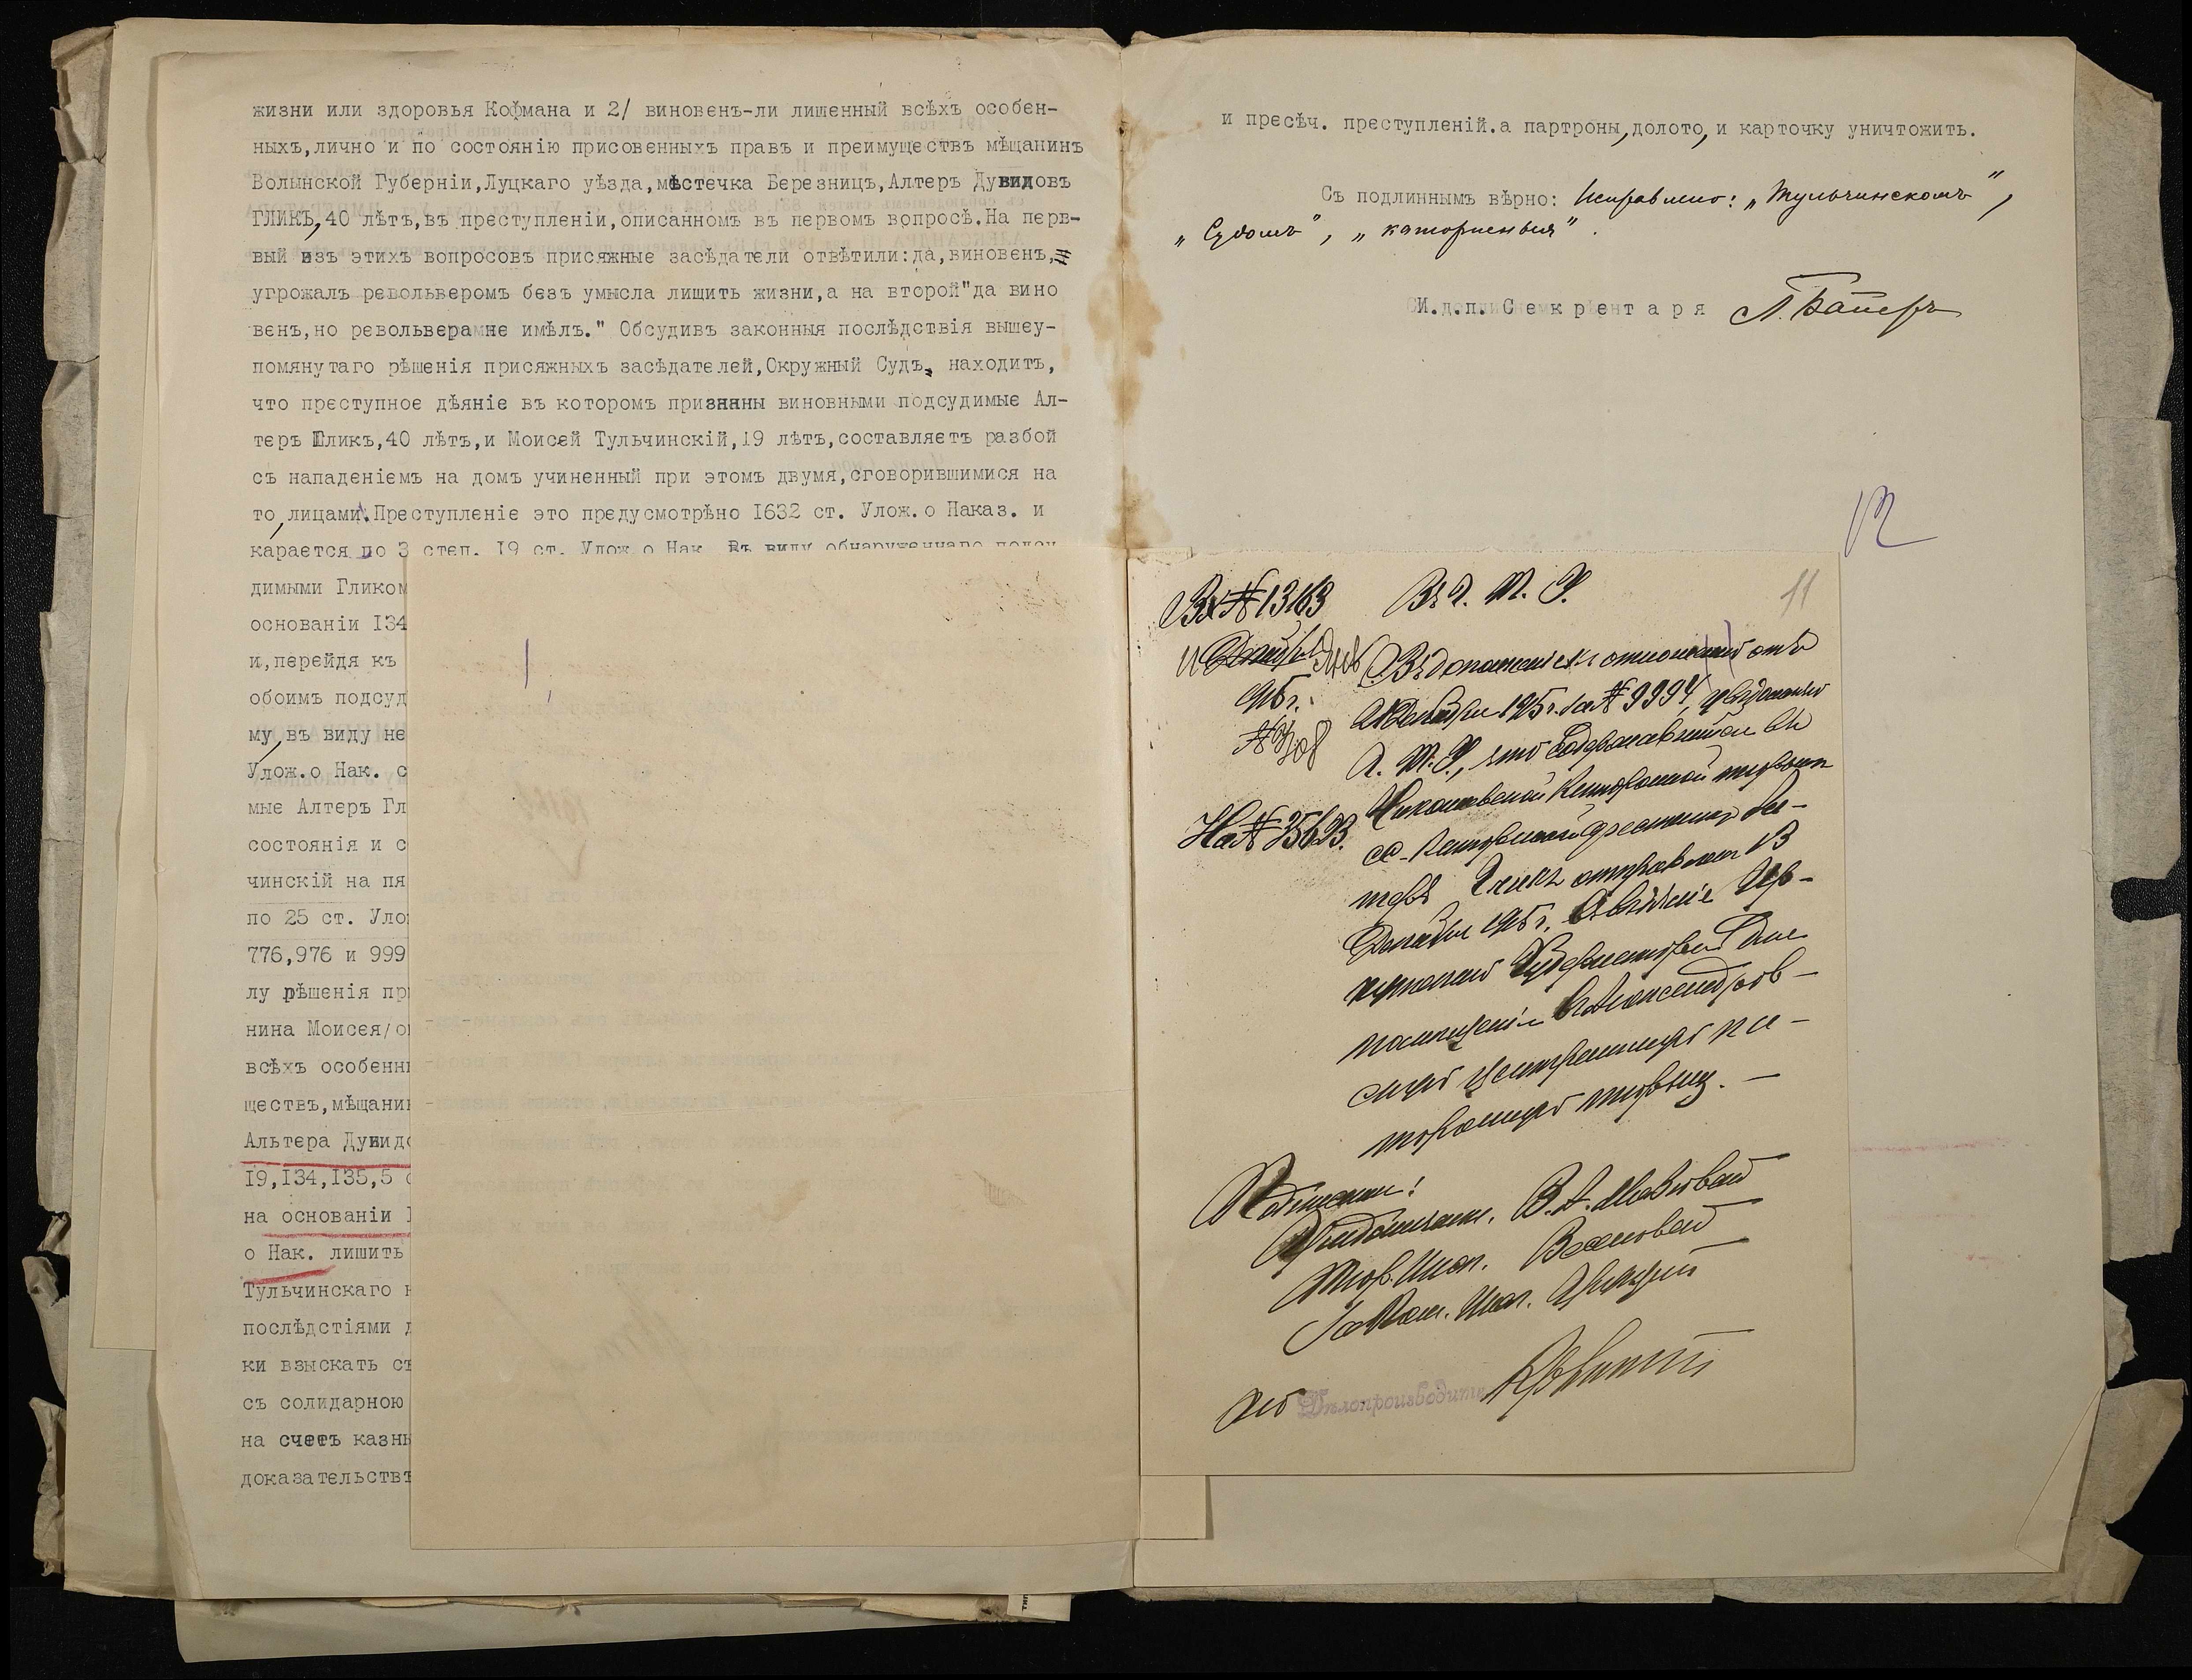 жизни или здоровья Кофмана и 2/ виновенъ-ли лишенный всѣхъ особен-
ныхъ,лично и по состоянію присовенныхъ правъ и преимуществъ мѣщанинъ
Волынской Губерніи,Луцкаго уѣзда,мѣстечка Березницъ,Алтеръ Дувидовъ
ГЛИКЪ,40 лѣтъ,въ преступленіи,описанномъ въ первомъ вопросѣ.На перв-
вый изъ этихъ вопросовъ присяжные засѣдатели отвѣтили:да,виновенъ,
угрожалъ револьверомъ безъ умысла лишить жизни,а на второй"да вино
венъ,но револьвера не имѣлъ." Обсудивъ законныя послѣдствія вышеу-
помянутаго рѣшенія присяжныхъ засѣдателей,Окружный Судъ, находитъ,
что преступное дѣяніе въ которомъ признаны виновными подсудимые Ал-
теръ Гликъ,40 лѣтъ,и Моисей Тульчинскій,19 лѣтъ,составляетъ разбой
съ нападеніемъ на домъ учиненный при этомъ двумя,сговорившимися на
то,лицами.Преступленіе это предусмотрѣно 1632 ст. Улож.о Наказ. и
карается по 3 степ. 19 ст. Улож.о Нак. Въ виду обнаруженнаго подсу-
димыми Гликом
основаніи 134
и,перейдя къ
обоимъ подсуд
му,въ виду не
Улож.о Нак. с
мые Алтеръ Гл
состоянія и с
чинскій на пя
по 25 ст. Уло
776,976 и 999
лу рѣшенія пр
нина Моисея/о
всѣхъ особенн
ществъ,мѣщани
Альтера Дувидо
19,134,135,5 с
на основаніи 1
о Нак. лишить
Тульчинскаго н
послѣдстіями д
ки взыскать съ
съ солидарною
на счетъ казны
доказательствъ
и пресѣч. преступленій.а партроны,долото,и карточку уничтожить.
Съ подлиннымъ вѣрно: Исправлено: „Тульчинскомъ",
„Судомъ", „каторженныя".
И.д.п.Секрентаря Л. Байеръ
12
11
Вх № 13163
Въ Г. Т. У.
915 г.
На № 35623.
Въ дополненіе къ отношенію отъ
2 Декабря 1915 г. за № 9994, увѣдомляю
Г. Т. У., что содержавшійся въ
Николаевской Каторжной тюрьмѣ
сс.-каторжный арестантъ Ал-
теръ Гликъ отправленъ 13
Декабря 1915 г. въ вѣдѣніе Ир-
кутской Губернской Тюр.
помѣщенія въ Александров-
скую центральную ка-
торжную тюрьму. —
Подписали:
Тюр. Инсп.
За Пом. Инсп.
Делопроизводитель